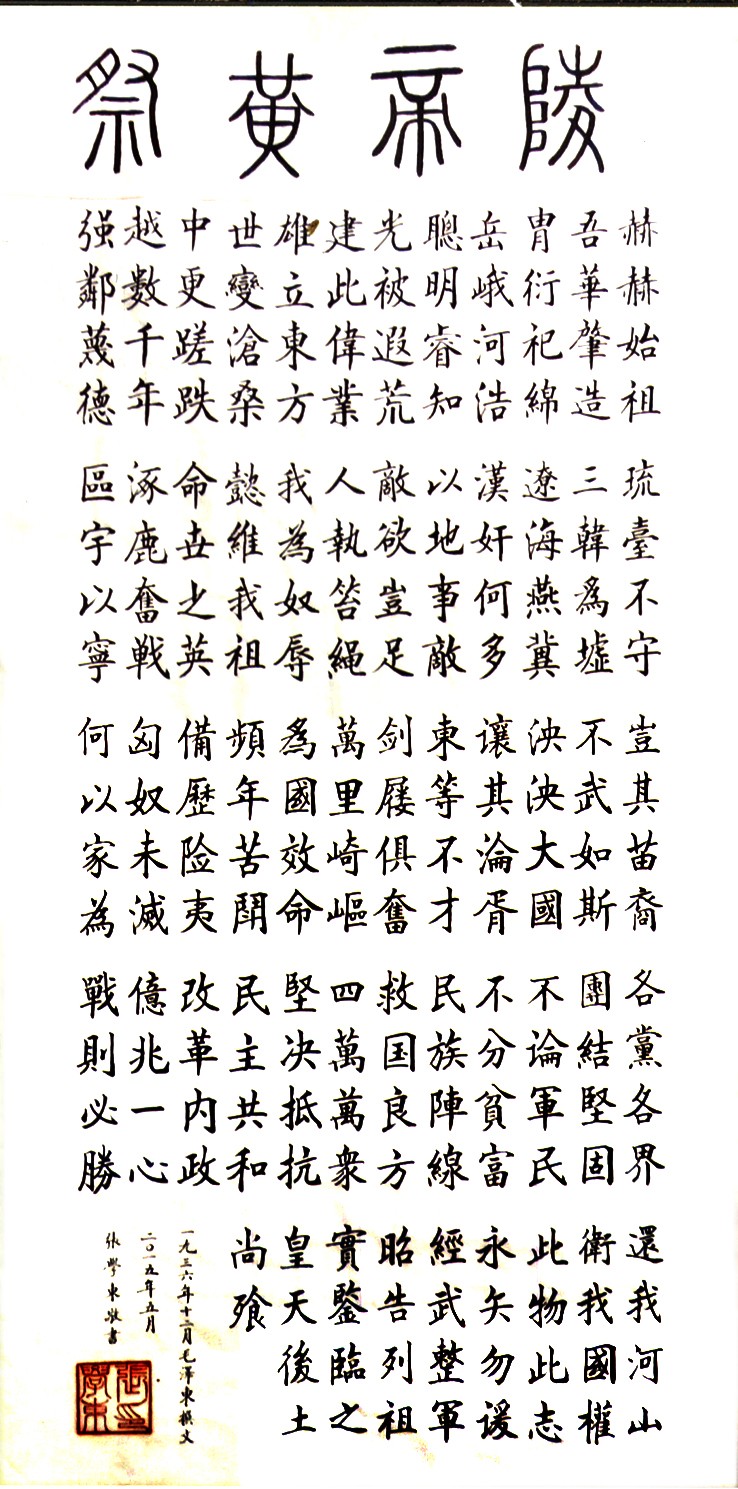 祭黄帝陵
赫赫始祖
吾華肇造
冑衍祀綿
岳峨河浩
聰明睿知
光被遐荒
建此偉業
雄立東方
世變滄桑
中更蹉跌
越數千年
强鄰蔑德
琉臺不守
三韓爲墟
遼海燕冀
漢奸何多
以地事敵
敵欲豈足
人執笞繩
我為奴辱
懿維我祖
命世之英
涿鹿奮戰
區宇以寧
豈其苗裔
不武如斯
泱泱大國
讓其淪胥
東等不才
剑屨俱奮
萬里崎嶇
爲國效命
頻年苦鬥
備歷险夷
匈奴未滅
何以家為
各黨各界
團結堅固
不論軍民
不分貧富
民族陣線
救国良方
四萬萬衆
堅决抵抗
民主共和
改革内政
億兆一心
戰則必勝
還我河山
衛我國權
此物此志
永矢勿谖
經武整軍
昭告列祖
實鑒臨之
皇天後土
尚飨
一九三六年十二月毛澤東撰文
二〇一五年五月
张學東敬書
張學東印